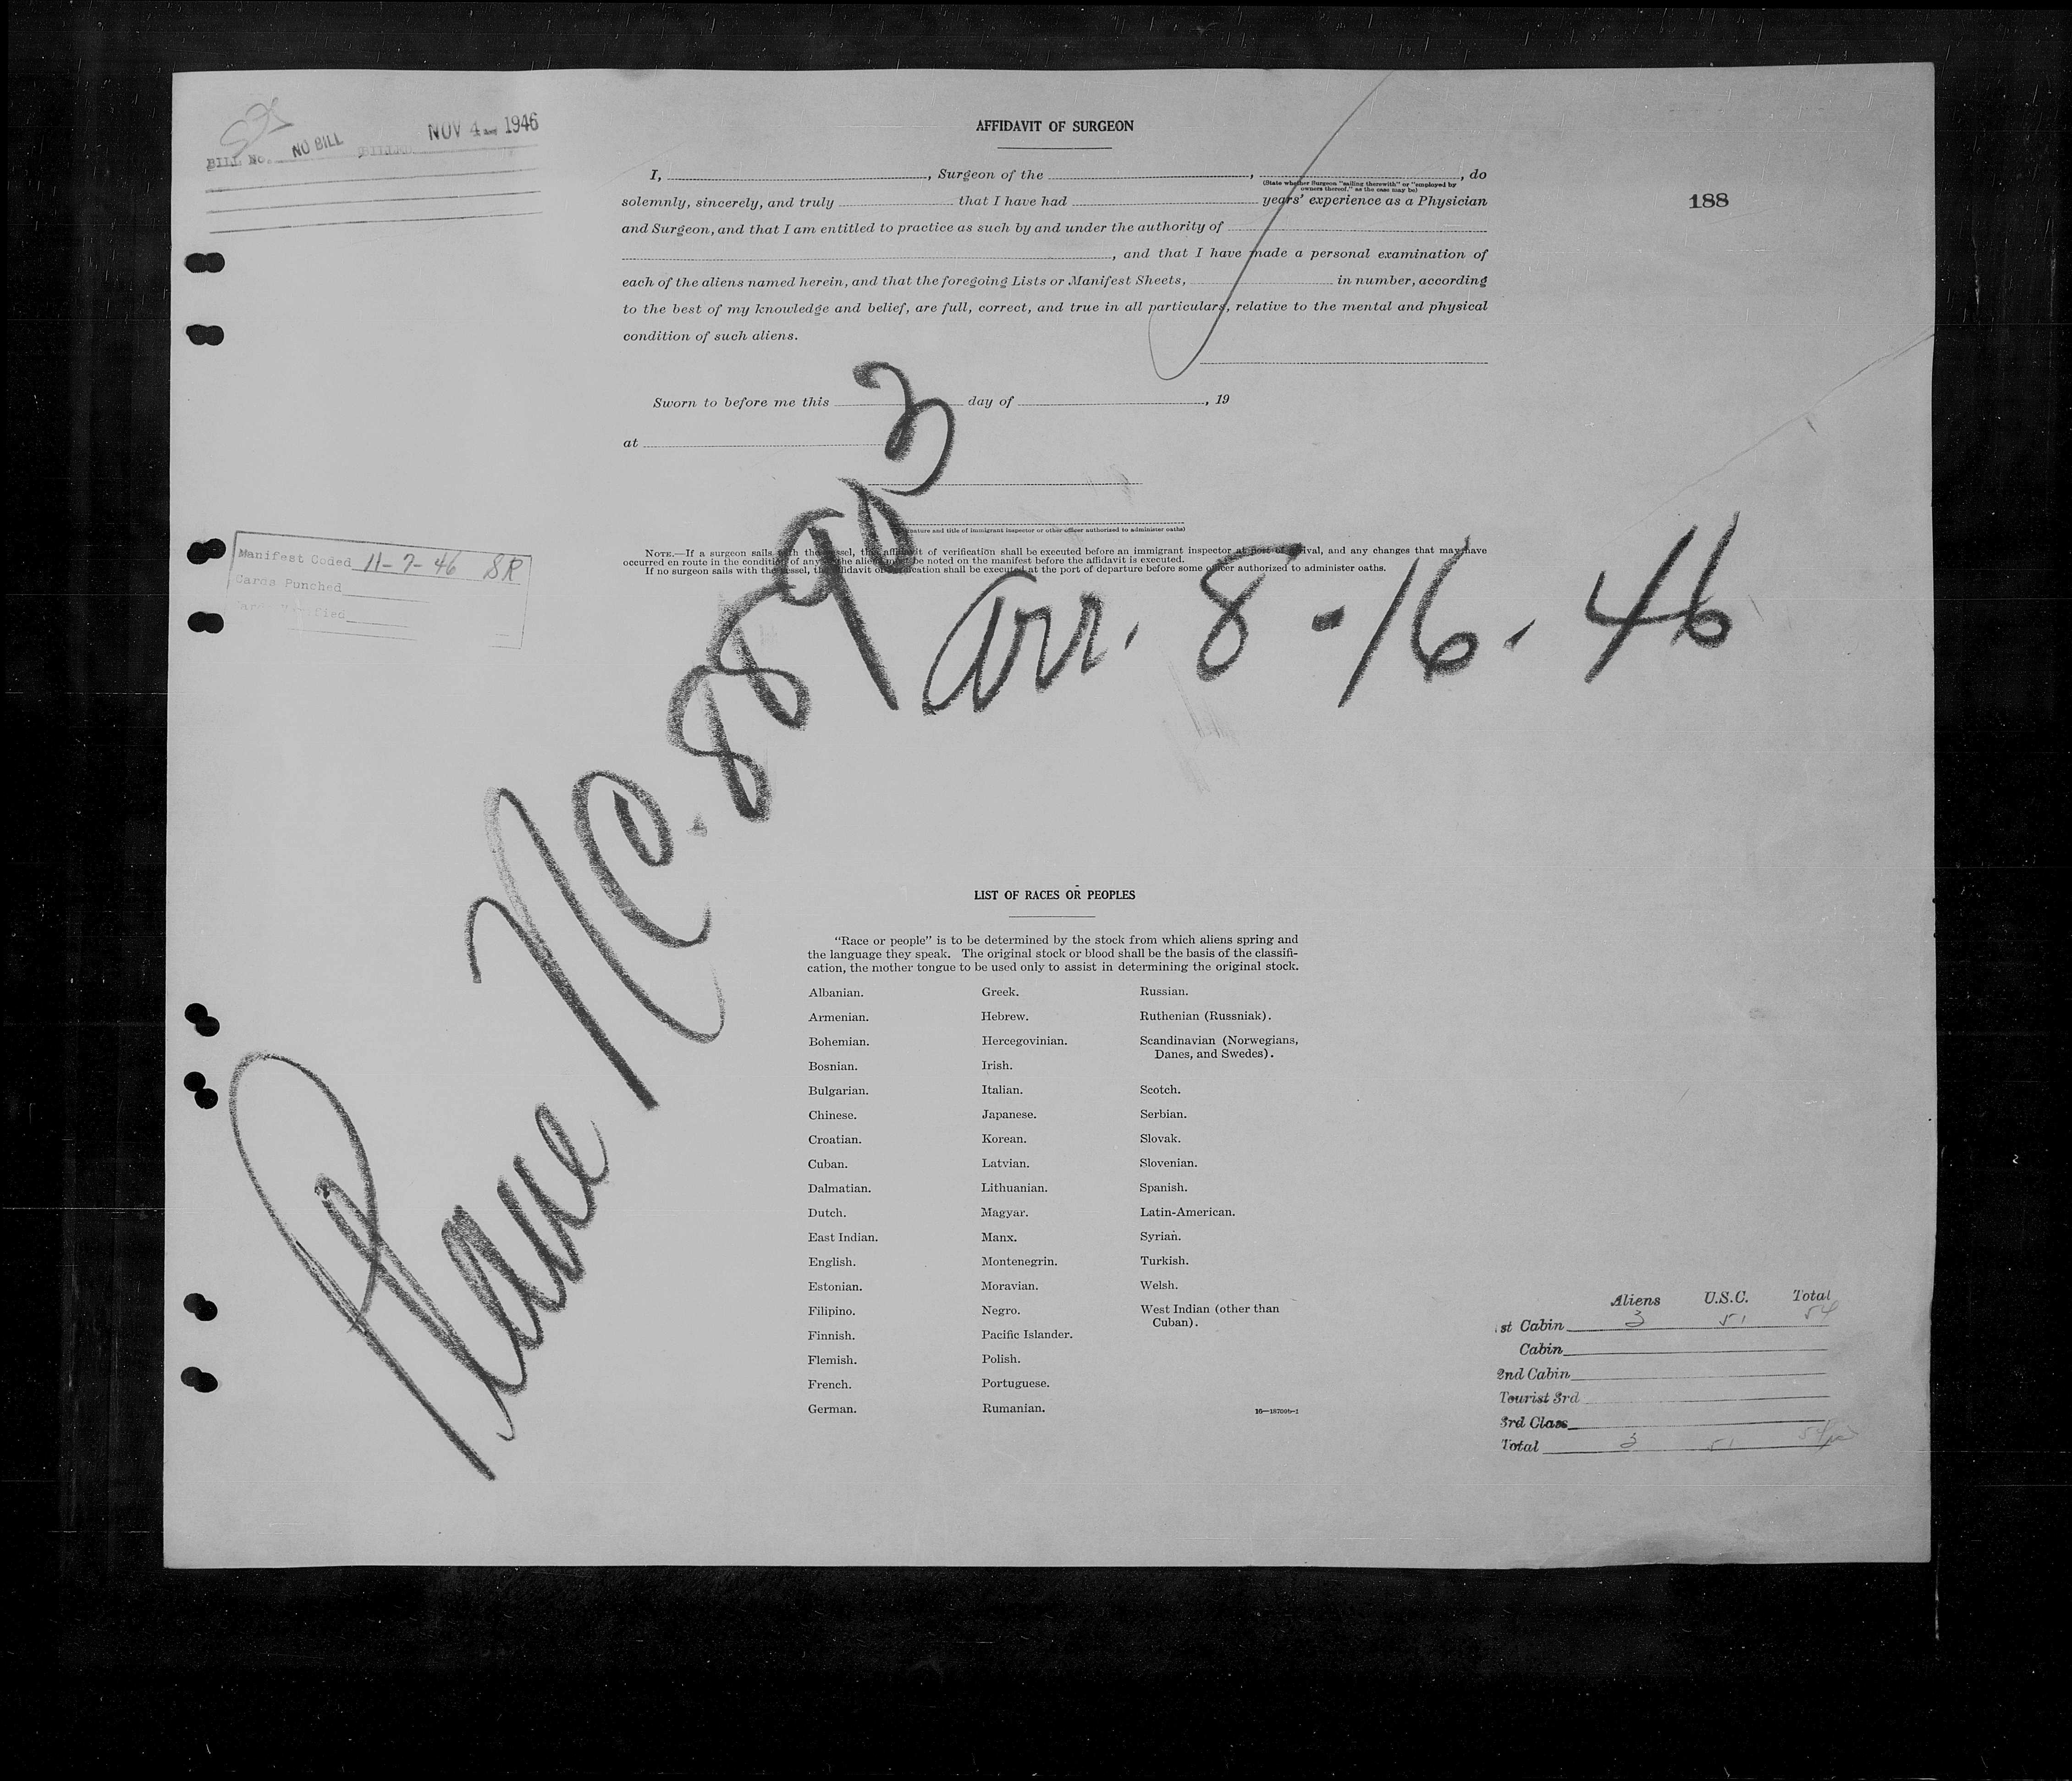 BILL No. NO BILL BILLED NOV 4 1946
AFFIDAVIT OF SURGEON
I, , Surgeon of the , , do
(State whether Surgeon "sailing therewith" or "employed by
owners thereof," as the case may be)
solemnly, sincerely, and truly that I have had years' experience as a Physician
188
and Surgeon, and that I am entitled to practice as such by and under the authority of
, and that I have made a personal examination of
each of the aliens named herein, and that the foregoing Lists or Manifest Sheets, in number, according
to the best of my knowledge and belief, are full, correct, and true in all particulars, relative to the mental and physical
condition of such aliens.
Sworn to before me this day of , 19
at
(Signature and title of immigrant inspector or other officer authorized to administer oaths)
NOTE.—If a surgeon sails with the vessel, this affidavit of verification shall be executed before an immigrant inspector at port of arrival, and any changes that may have
occurred en route in the condition of any of the aliens must be noted on the manifest before the affidavit is executed.
If no surgeon sails with the vessel, the affidavit of verification shall be executed at the port of departure before some officer authorized to administer oaths.
Manifest Coded 11-7-46 SR
Cards Punched
Cards Verified
Plane NC. 88903
arr. 8-16-46
LIST OF RACES OR PEOPLES
"Race or people" is to be determined by the stock from which aliens spring and
the language they speak. The original stock or blood shall be the basis of the classifi-
cation, the mother tongue to be used only to assist in determining the original stock.
Albanian.
Armenian.
Bohemian.
Bosnian.
Bulgarian.
Chinese.
Croatian.
Cuban.
Dalmatian.
Dutch.
East Indian.
English.
Estonian.
Filipino.
Finnish.
Flemish.
French.
German.
Greek.
Hebrew.
Hercegovinian.
Irish.
Italian.
Japanese.
Korean.
Latvian.
Lithuanian.
Magyar.
Manx.
Montenegrin.
Moravian.
Negro.
Pacific Islander.
Polish.
Portuguese.
Rumanian.
Russian.
Ruthenian (Russniak).
Scandinavian (Norwegians,
Danes, and Swedes).
Scotch.
Serbian.
Slovak.
Slovenian.
Spanish.
Latin-American.
Syrian.
Turkish.
Welsh.
West Indian (other than
Cuban).
16—18700b-1
Aliens U.S.C. Total
1st Cabin 3 51 54
Cabin
2nd Cabin
Tourist 3rd
3rd Class
Total 3 51 54